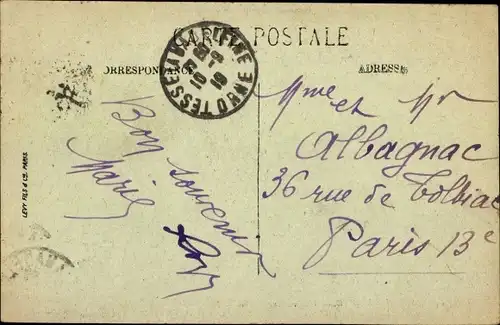 CARTE POSTALE
CORRESPONDANCE
ADRESSE
TESSE LA MADELEINE ORNE
Bon souvenir
Marie
Mme et Mr
Albagnac
36 rue de Tolbiac
Paris 13e
LEVY FILS & Cie, PARIS